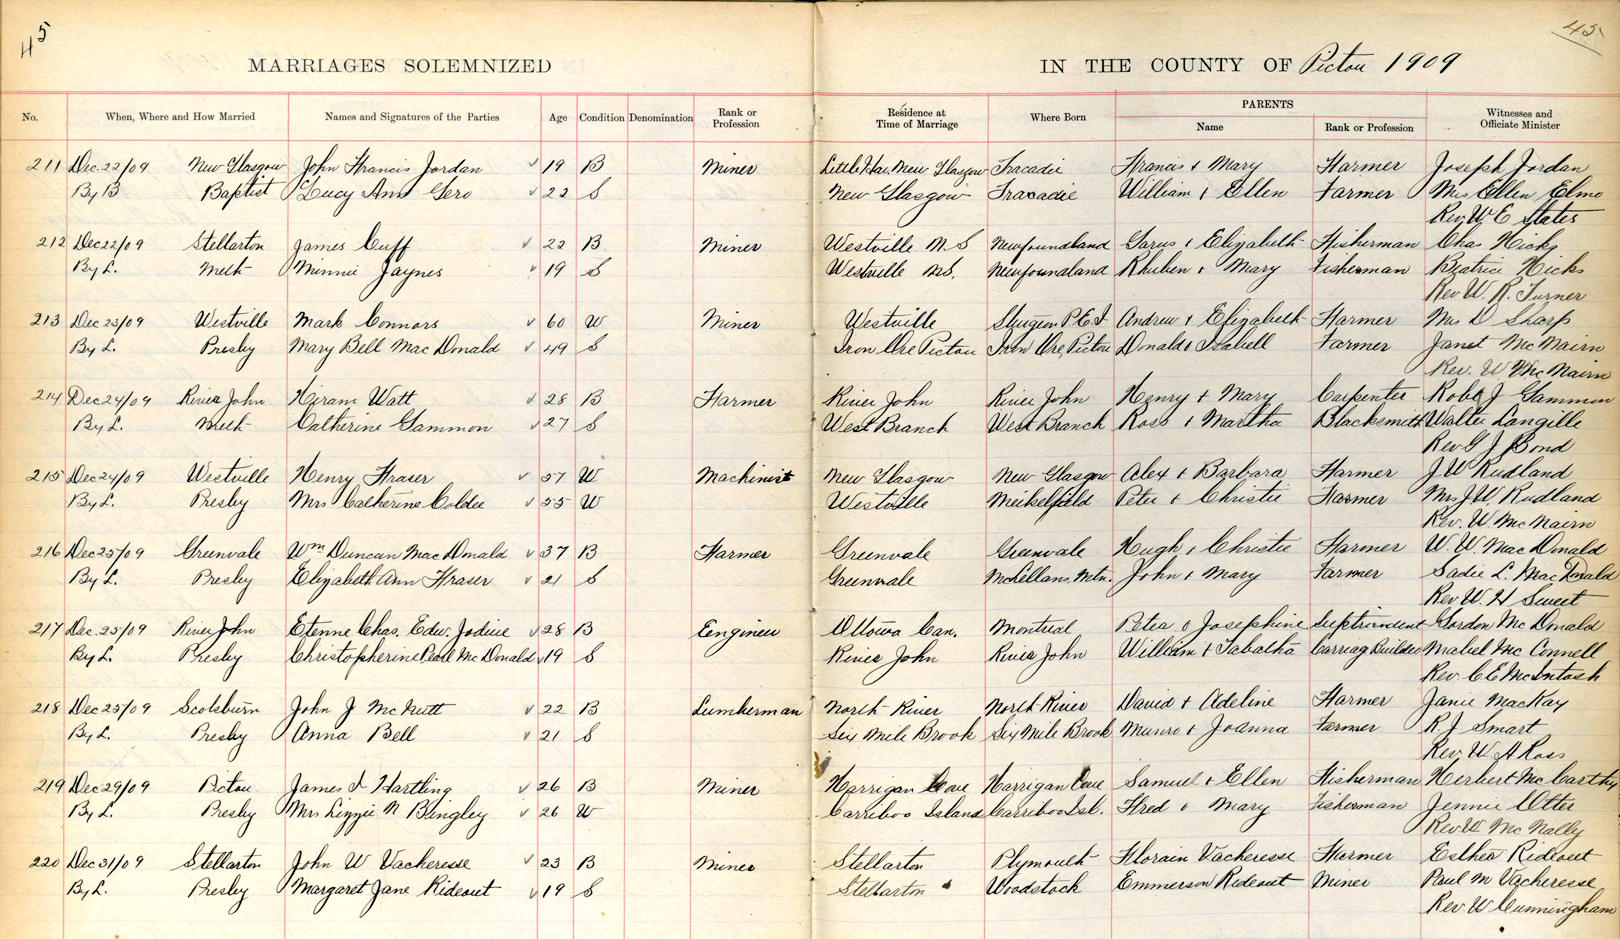 45
45
MARRIAGES SOLEMNIZED IN THE COUNTY OF Pictou 1909
No. When, Where and How Married Names and Signatures of the Parties Age Condition Denomination Rank or Profession Residence at Time of Marriage Where Born PARENTS Name Rank or Profession Witnesses and Officiate Minister
211 Dec 22/09 New Glasgow John Francis Jordan 19 B Miner New Glasgow Tracadie Francis + Mary Farmer Joseph Jordan
By B Baptist Lucy Ann Gero 22 S New Glasgow Tracadie William + Ellen Farmer Mrs Ellen Elms
Rev W E States
212 Dec 22/09 Stellarton James Cuff 22 B Miner Westville N S Newfoundland Garus + Elizabeth Fisherman Chas Hicks
By L. Meth Minnie Jaynes 19 S Westville NS. Newfoundland Rhuben + Mary Fisherman Beatrice Hicks
Rev W. R. Turner
213 Dec 23/09 Westville Mark Connors 60 W Miner Westville Sturgeon P.E.I Andrew + Elizabeth Farmer Mrs D Sharp
By L. Presby Mary Bell Mac Donald 49 S Iron Ore Pictou Iron Ore, Pictou Donald + Isabell Farmer Janet McNairn
Rev. W McNairn
214 Dec 24/09 River John Hiram Watt 28 B Farmer River John River John Henry + Mary Carpenter Robt J Gammon
By L. Meth Catherine Gammon 27 S West Branch West Branch Ross + Martha Blacksmith Walter Langille
Rev G J Bond
215 Dec 24/09 Westville Henry Fraser 57 W Machinist New Glasgow New Glasgow Alex + Barbara Farmer J. W Rudland
By L. Presby Mrs Catherine Coldee 55 W Westville Meikelfield Peter + Christie Farmer Mrs J W Rudland
Rev. W McNairn
216 Dec 25/09 Greenvale Wm Duncan Mac Donald 37 B Farmer Greenvale Greenvale Hugh + Christie Farmer W. W. Mac Donald
By L. Presby Elizabeth Ann Fraser 21 S Greenvale McLellans Mtn. John + Mary Farmer Sadie L. Mac Donald
Rev W. H Sweet
217 Dec. 25/09 River John Etenne Chas. Edw. Jodive 28 B Eengineer Ottowa Can. Montreal Peter + Josephine Suptrindent Gordon Mc Donald
By L. Presby Christopherine Pearl Mc Donald 19 S River John River John William + Tabatha Carriag Builder Mabel Mc Connell
Rev. C E McIntosh
218 Dec 25/09 Scotsburn John J McNutt 22 B Lumberman North River North River David + Adeline Farmer Janie MacKay
By L. Presby Anna Bell 21 S Six Mile Brook Six Mile Brook Munro + Joanna Farmer R J Smart
Rev. W A Ross
219 Dec 29/09 Pictou James I Hartling 26 B Miner Harrigan Cove Harrigan Cove Samuel + Ellen Fisherman Herbert McCarthy
By L. Presby Mrs Lizzie N Bingley 26 W Carriboo Island Carriboo Isl. Fred + Mary Fisherman Jennie Otter
Rev W McNally
220 Dec 31/09 Stellarton John W Vacheresse 23 B Miner Stellarton Plymouth Florain Vacheresse Farmer Esther Rideout
By L. Presby Margaret Jane Rideout 19 S Stellarton Woodstock Emmerson Rideout Miner Paul M Vacheresse
Rev. W Cunningham